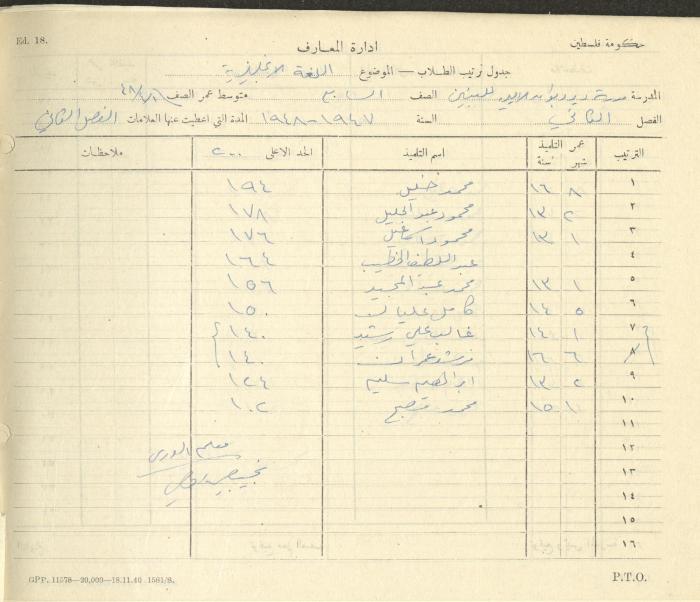 Ed. 18.
حكومة فلسطين
ادارة المعارف
جدول ترتيب الطلاب — الموضوع اللغة الانجليزية
المدرسة للبنين الصف السابع متوسط عمر الصف
الفصل الثاني السنة ١٩٤٧-١٩٤٨ المدة التي اعطيت عنها العلامات الفصل الثاني
الترتيب عمر التلميذ شهر سنة اسم التلميذ الحد الاعلى ٢٠٠ ملاحظات
١ ٨ ١٦ محمد خليل ١٩٤
٢ ٢ ١٣ محمود عبد الجليل ١٧٨
٣ ١ ١٣ محمود اسماعيل ١٧٦
٤ عبد اللطيف الخطيب ١٦٤
٥ ١ ١٣ محمد عبد المجيد ١٥٦
٦ ٥ ١٤ كامل عليان ١٥٠
٧ ١ ١٤ غالب علي رشيد ١٤٠
٨ ٦ ١٦ عمران ١٤٠
٩ ٢ ١٣ ابراهيم سليم ١٢٤
١٠ ١ ١٥ محمد ١٠٢
١١
١٢ معلم الدرس
١٣
١٤
١٥
١٦
GPP. 11578—20,000—18.11.40 1581/S.
P.T.O.